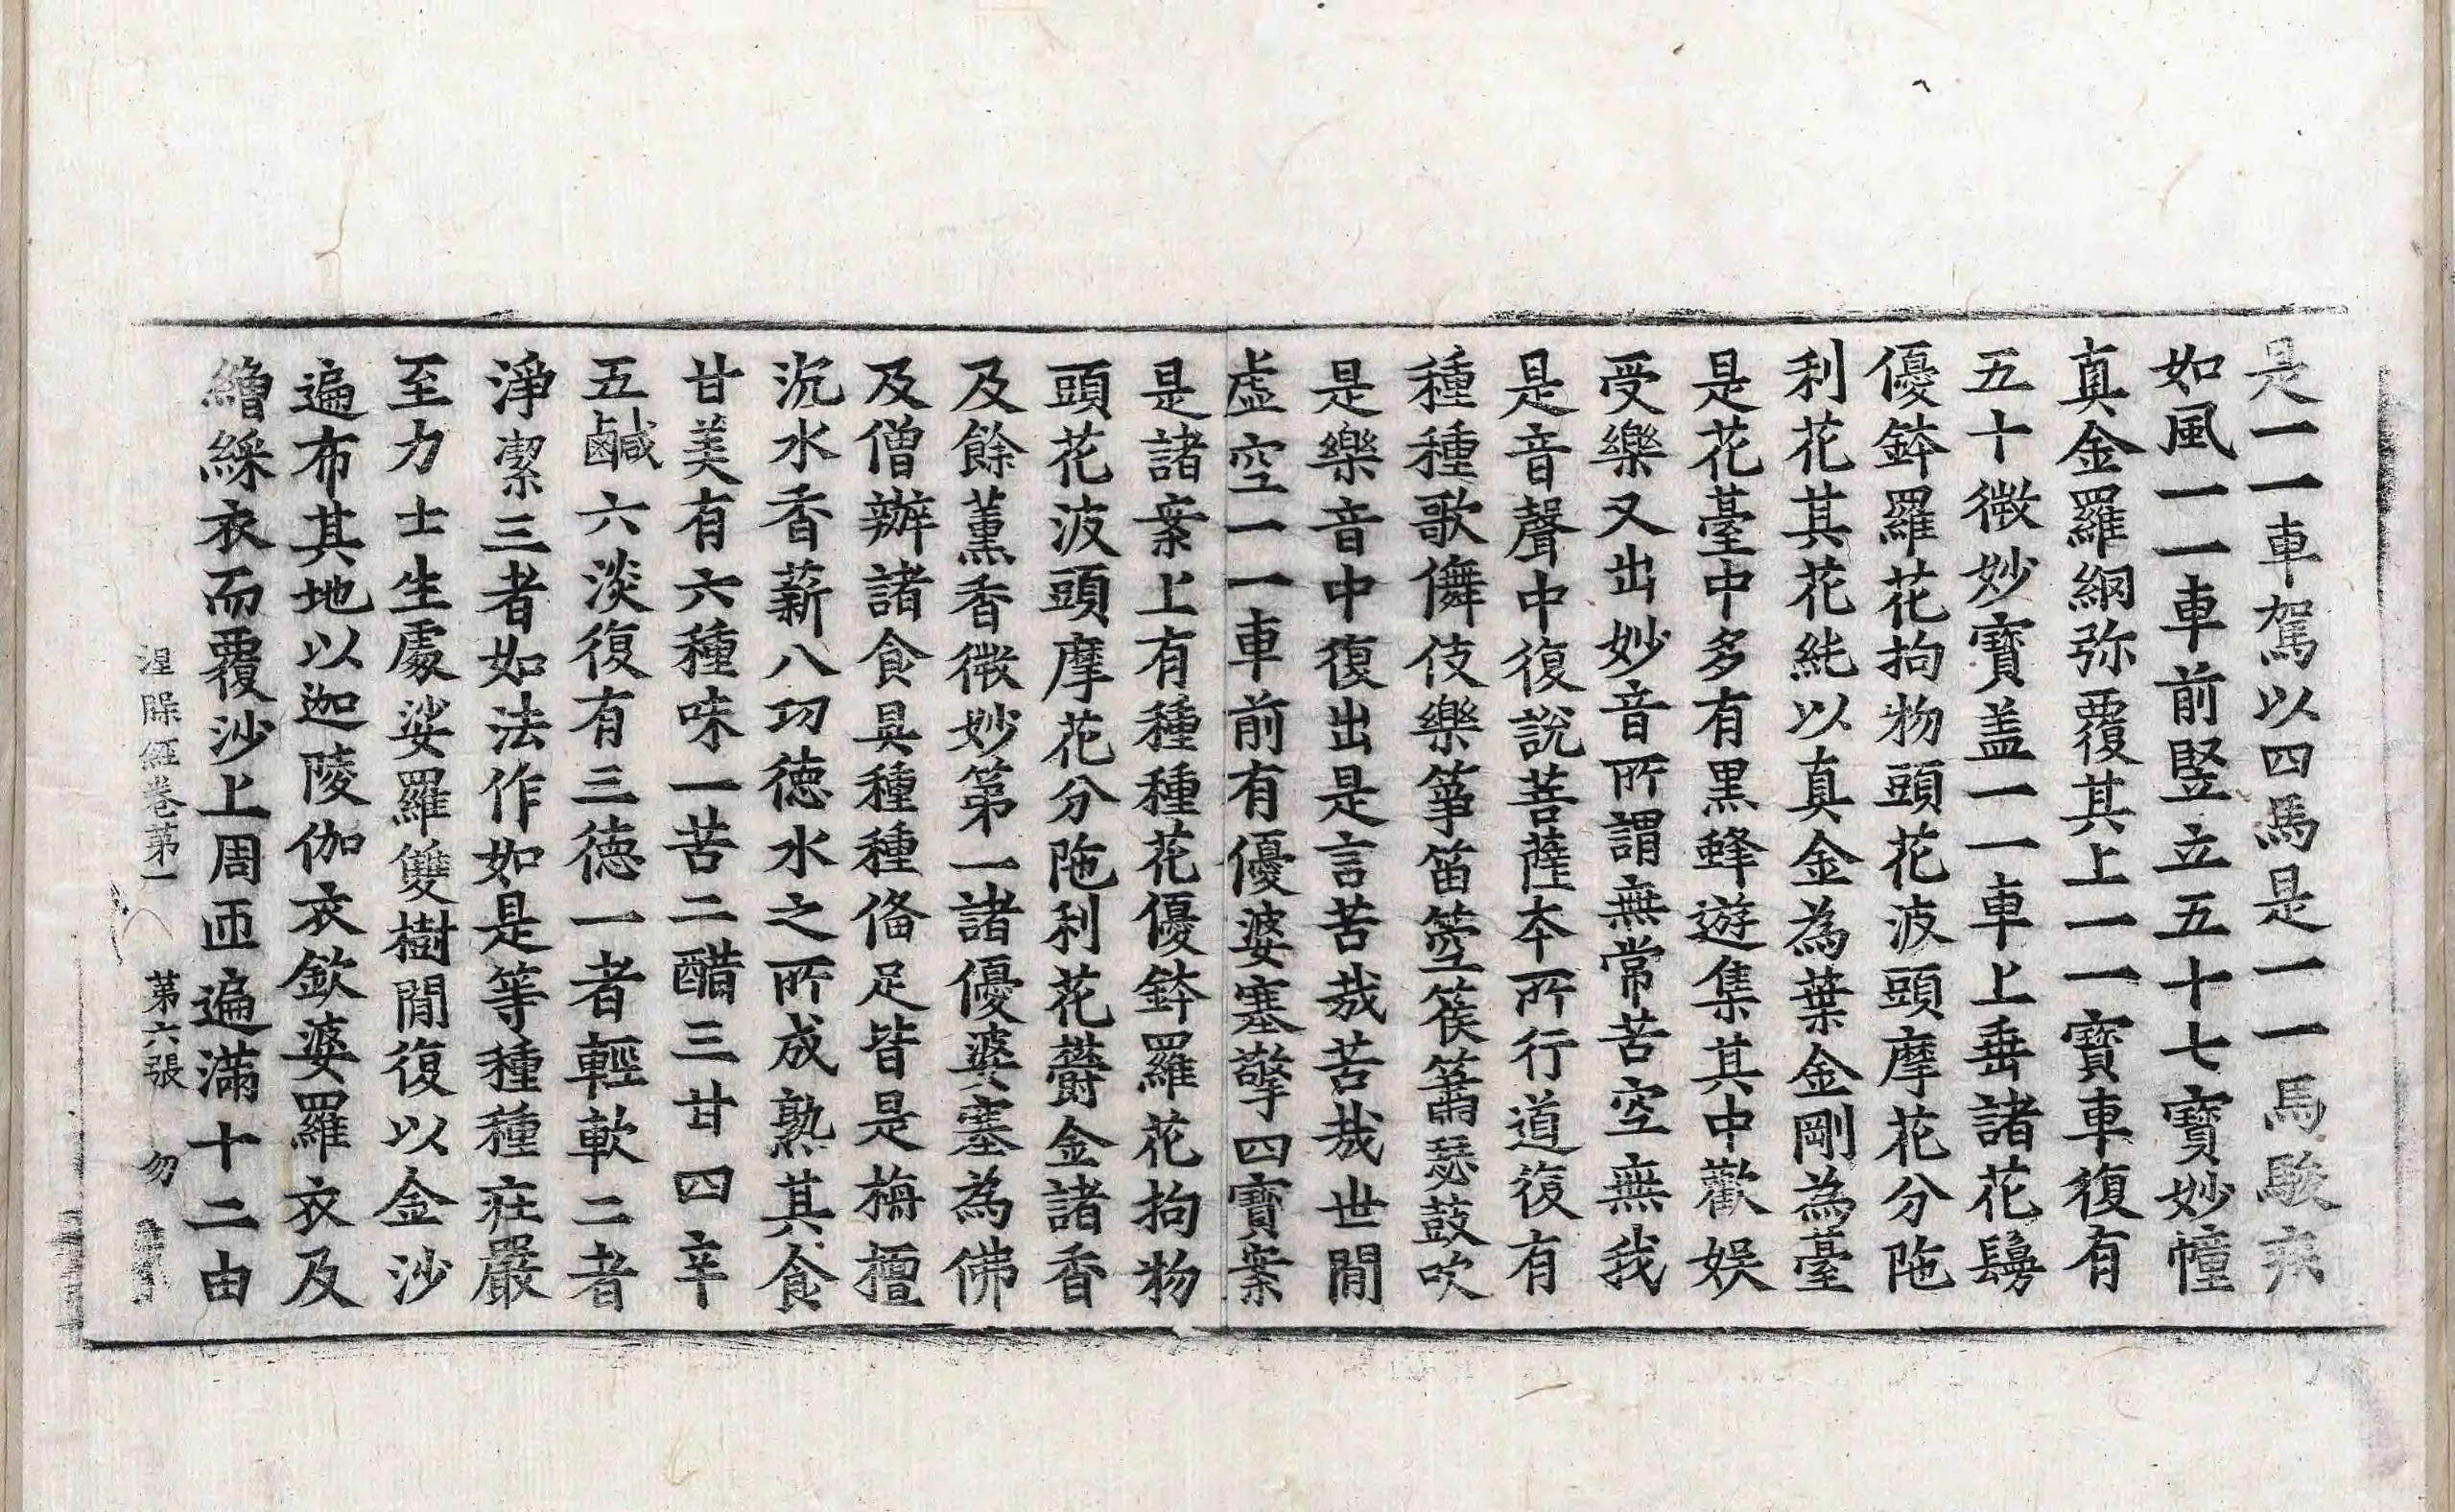 是一一車駕以四馬是一一馬駿疾
如風一一車前竪立五十七寶妙幢
真金羅網弥覆其上一一寶車復有
五十微妙寶盖一一車上垂諸花鬘
優鉢羅花拘物頭花波頭摩花分陁
利花其花純以真金為葉金剛為臺
是花臺中多有黒蜂遊集其中歡娱
受樂又出妙音所謂無常苦空無我
是音聲中復說菩薩本所行道復有
種種歌儛伎樂箏笛箜篌簫瑟鼓吹
是樂音中復出是言苦哉苦哉世閒
虛空一一車前有優婆塞擎四寶案
是諸案上有種種花優鉢羅花拘物
頭花波頭摩花分陁利花欝金諸香
及餘薰香微妙苐一諸優婆塞為佛
及僧辦諸食具種種俻足皆是栴檀
沉水香薪八功德水之所成熟其食
甘美有六種味一苦二醋三甘四辛
五鹹六淡復有三德一者輕軟二者
淨潔三者如法作如是等種種莊嚴
至力士生處娑羅雙樹閒復以金沙
遍布其地以迦陵伽衣欽婆羅衣及
繒綵衣而覆沙上周匝遍滿十二由
涅槃經卷苐一 苐六張 勿